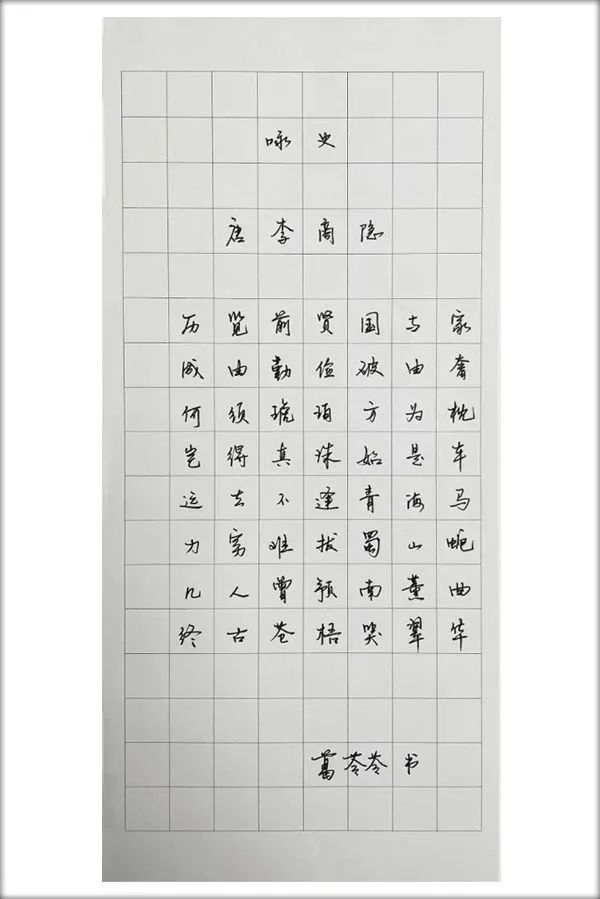 咏史
唐李商隐
历览前贤国与家
成由勤俭破由奢
何须琥珀方为枕
岂得真珠始是车
运去不逢青海马
力穷难拔蜀山蛇
几人曾预南薰曲
终古苍梧哭翠华
葛苓苓书